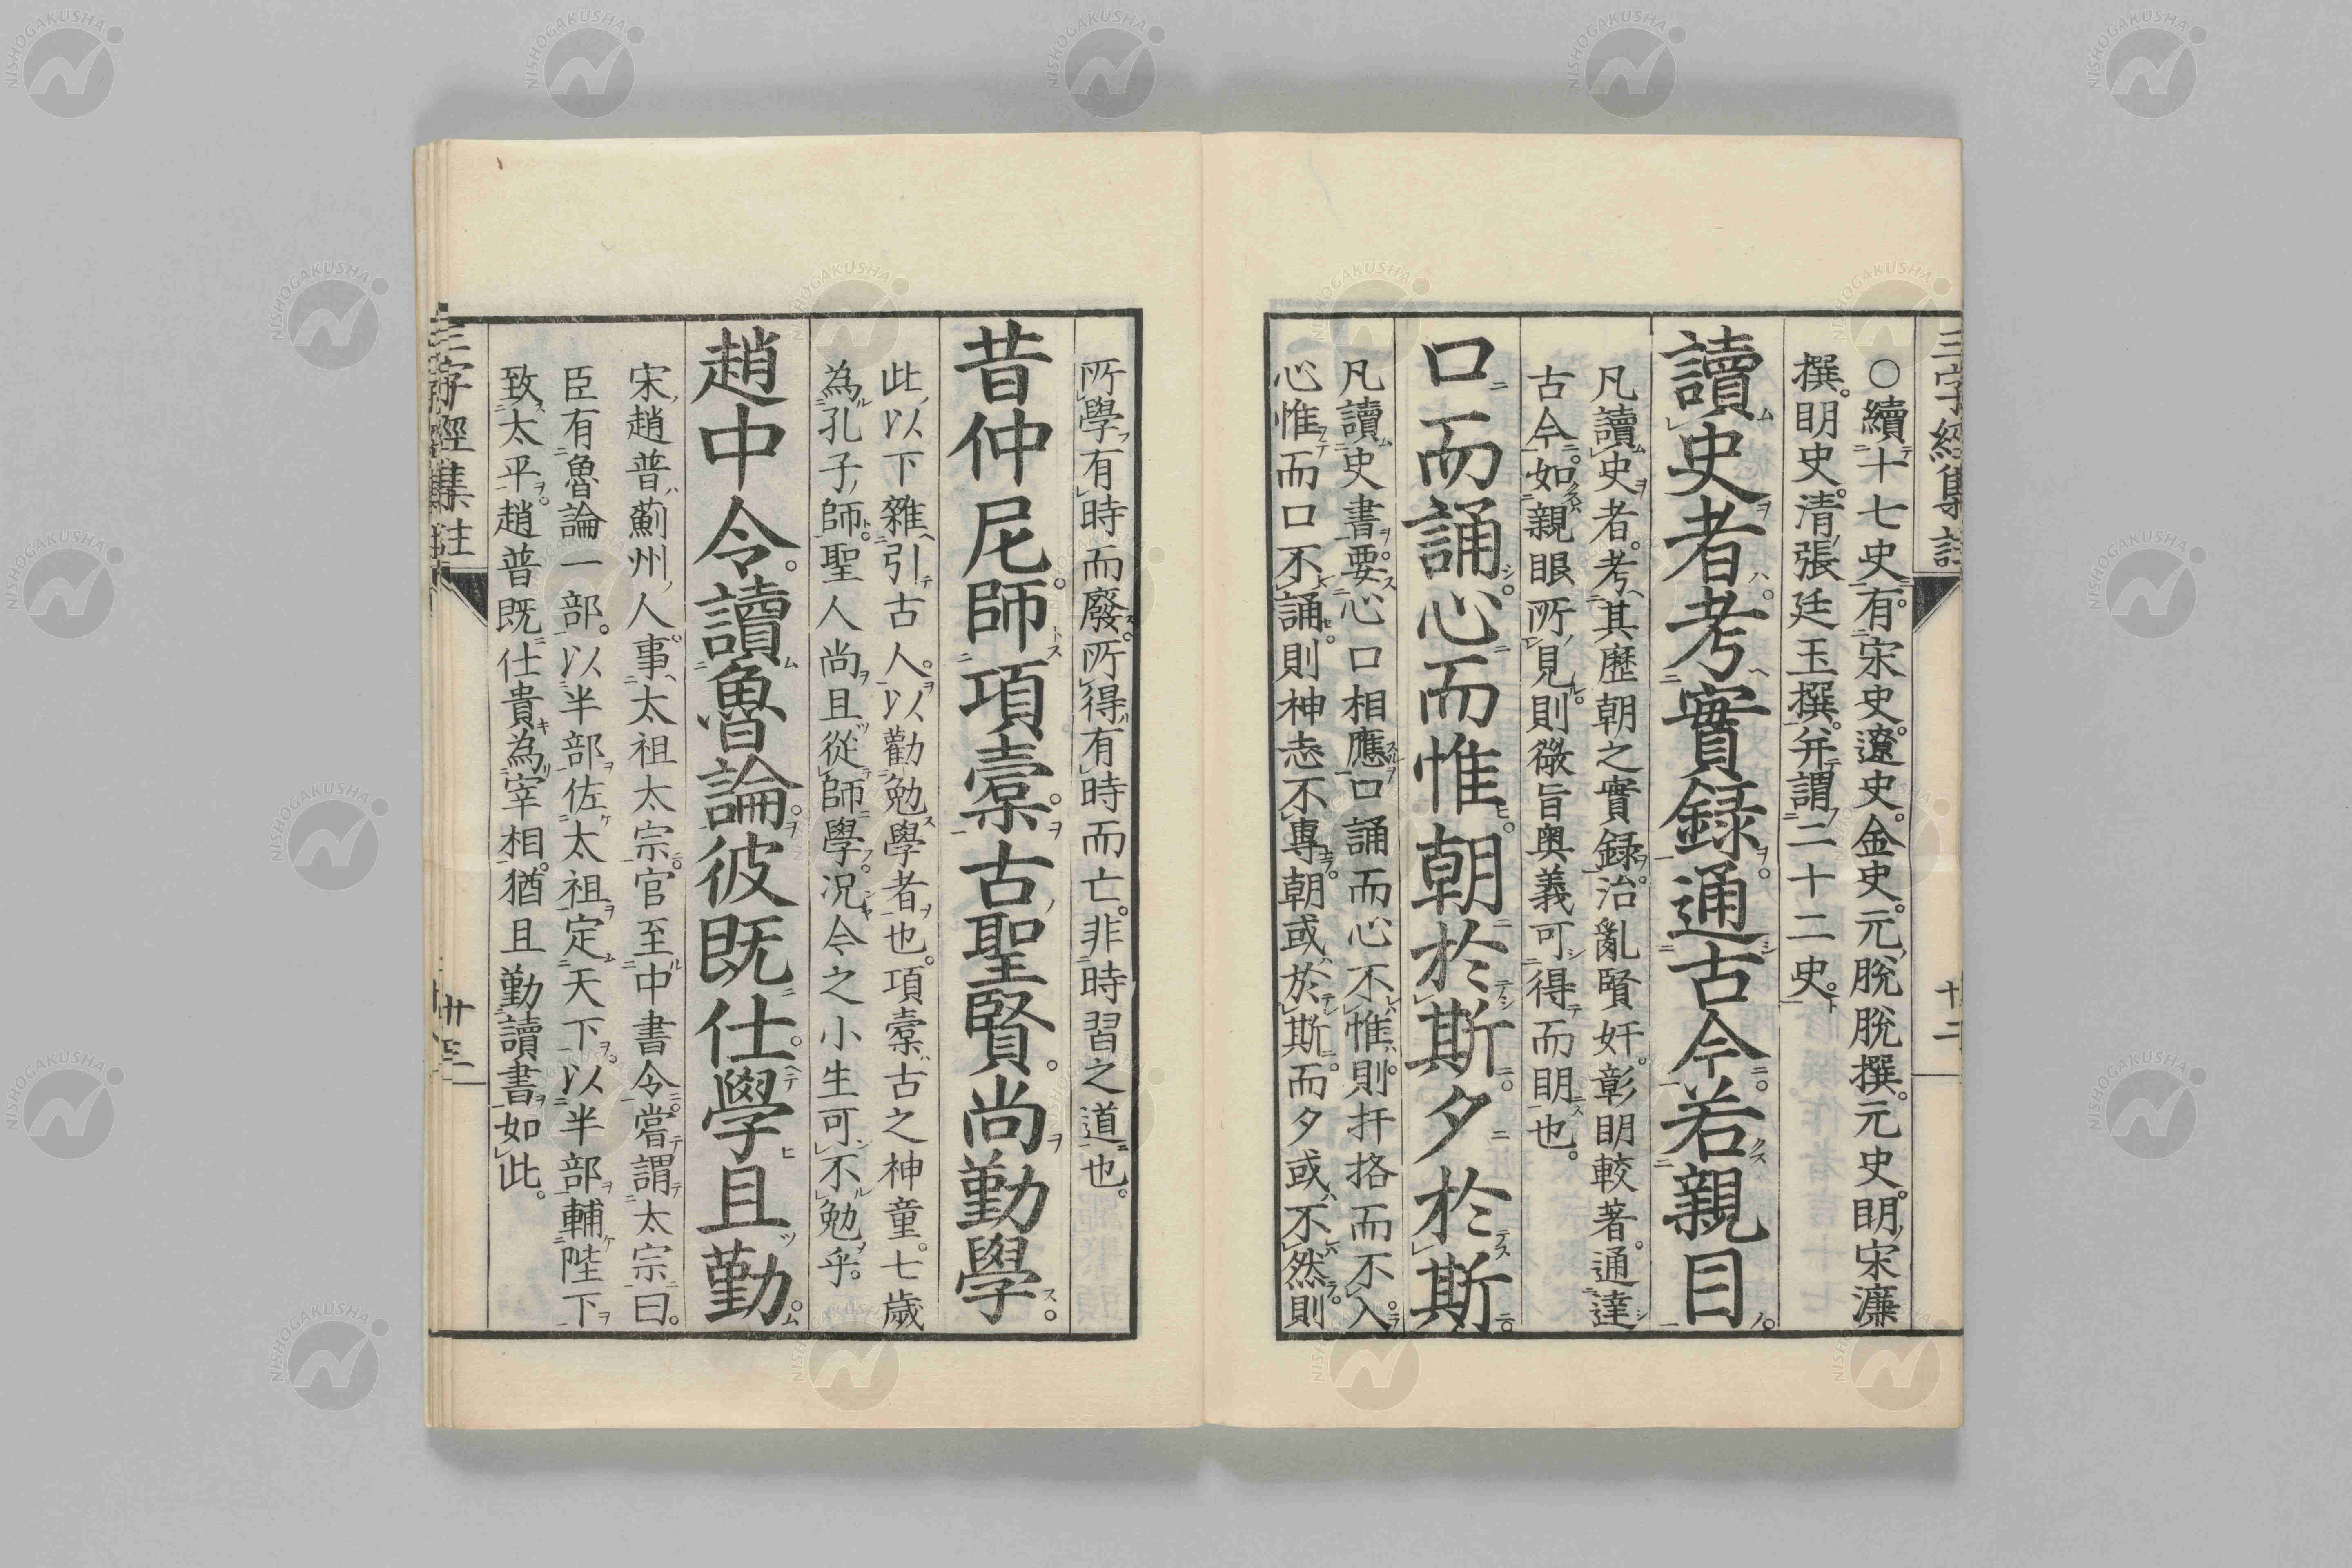 三字經集註
○續十七史有宋史遼史金史元脫脫撰元史明宋濂
撰明史清張廷玉撰并謂二十二史
讀史者考實録通古今若親目
凡讀史者考其歷朝之實録治亂賢奸彰明較著通達
古今如親眼所見則微旨奥義可得而明也
口而誦心而惟朝於斯夕於斯
凡讀史書要心口相應口誦而心不惟則扞挌而不入
心惟而口不誦則神忘不專朝或於斯而夕或不然則
所學有時而廢所得有時而亡非時習之道也
昔仲尼師項橐古聖賢尚勤學
此以下雜引古人以勸勉學者也項橐古之神童七歲
為孔子師聖人尚且從師學况今之小生可不勉乎
趙中令讀魯論彼既仕學且勤
宋趙普薊州人事太祖太宗官至中書令嘗謂太宗曰
臣有魯論一部以半部佐太祖定天下以半部輔陛下
致太平趙普既仕貴為宰相猶且勤讀書如此
三字經集註
NISHOGAKUSHA